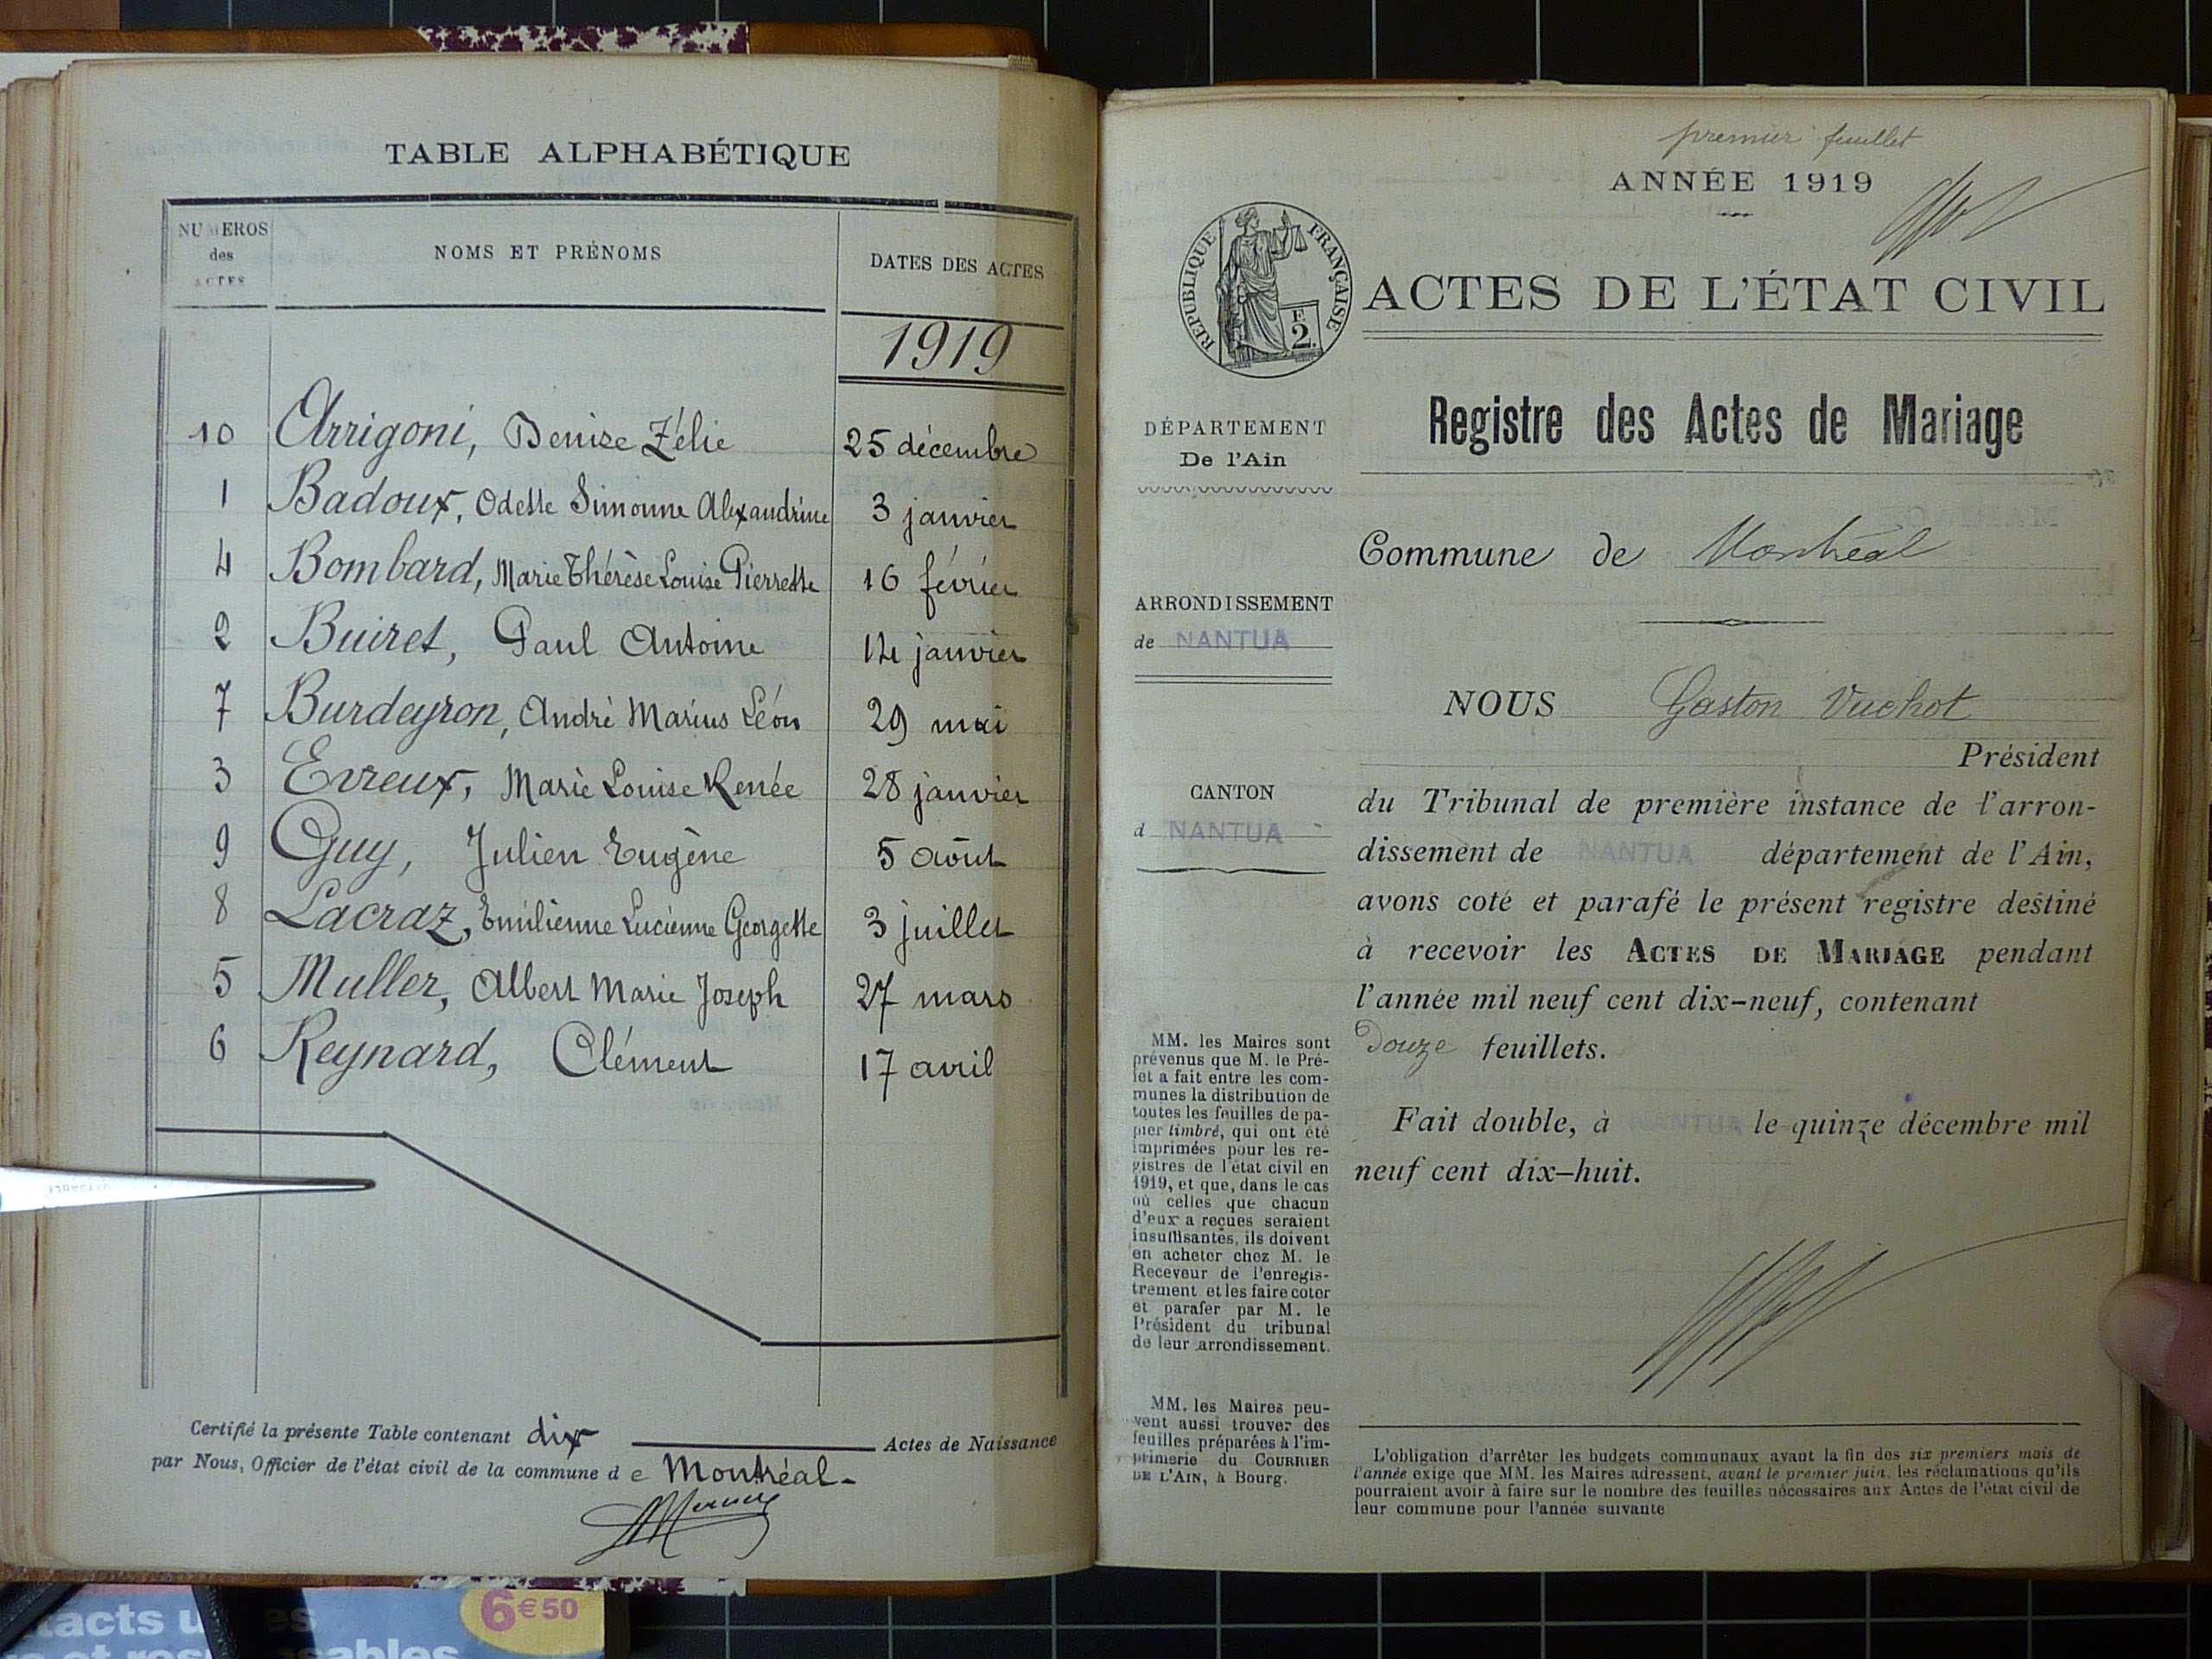 TABLE ALPHABÉTIQUE
NUMEROS
des
ACTES
NOMS ET PRÉNOMS
DATES DES ACTES
1919
10 Arrigoni, Denise Zélie 25 décembre
1 Badoux, Odette Simonne Alexandrine 3 janvier
4 Bombard, Marie Thérèse Louise Pierrette 16 février
2 Buiret, Paul Antoine 14 janvier
7 Burdeyron, André Marius Léon 29 mai
3 Evreux, Marie Louise Renée 28 janvier
9 Guy, Julien Eugène 5 août
8 Lacraz, Emilienne Lucienne Georgette 3 juillet
5 Muller, Albert Marie Joseph 27 mars
6 Reynard, Clément 17 avril
Certifié la présente Table contenant dix Actes de Naissance
par Nous, Officier de l'état civil de la commune d e Montréal
premier feuillet
ANNÉE 1919
RÉPUBLIQUE FRANÇAISE
E
2.
ACTES DE L'ÉTAT CIVIL
Registre des Actes de Mariage
DÉPARTEMENT
De l'Ain
Commune de Montréal
ARRONDISSEMENT
de NANTUA
NOUS Gaston Vuchot
Président
CANTON
d NANTUA
du Tribunal de première instance de l'arron-
dissement de NANTUA département de l'Ain,
avons coté et parafé le présent registre destiné
à recevoir les ACTES DE MARIAGE pendant
l'année mil neuf cent dix-neuf, contenant
Douze feuillets.
Fait double, à NANTUA le quinze décembre mil
neuf cent dix-huit.
MM. les Maires sont
prévenus que M. le Pré-
fet a fait entre les com-
munes la distribution de
toutes les feuilles de pa-
pier timbré, qui ont été
imprimées pour les re-
gistres de l'état civil en
1919, et que, dans le cas
où celles que chacun
d'eux a reçues seraient
insuffisantes, ils doivent
en acheter chez M. le
Receveur de l'enregis-
trement et les faire coter
et parafer par M. le
Président du tribunal
de leur arrondissement.
MM. les Maires peu-
vent aussi trouver des
feuilles préparées à l'im-
primerie du COURRIER
DE L'AIN, à Bourg.
L'obligation d'arrêter les budgets communaux avant la fin des six premiers mois de
l'année exige que MM. les Maires adressent, avant le premier juin, les réclamations qu'ils
pourraient avoir à faire sur le nombre des feuilles nécessaires aux Actes de l'état civil de
leur commune pour l'année suivante
6€50